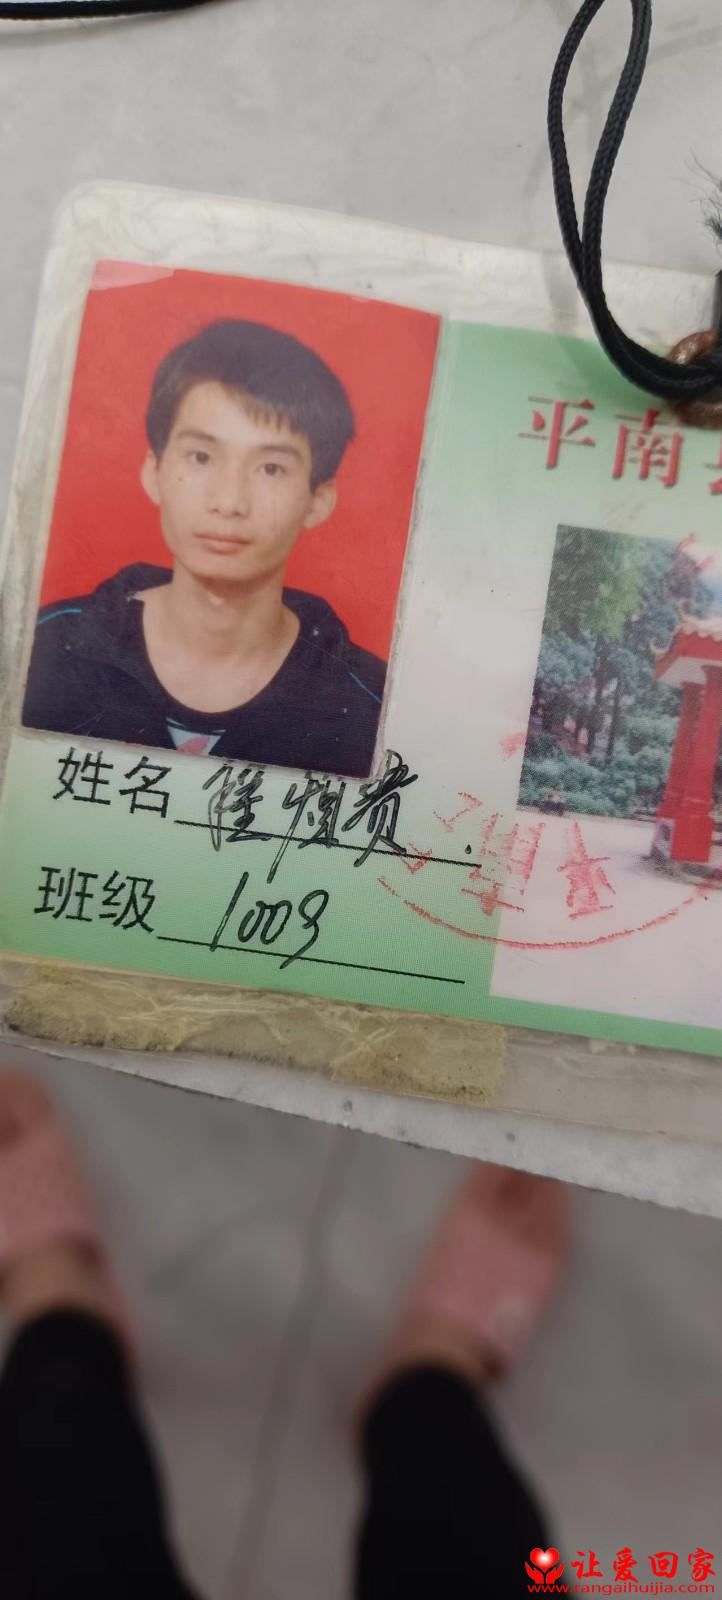 平南
姓名 贵
班级 1003
让爱回家
www.rangaihuijia.com